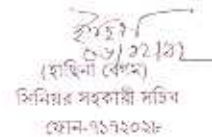 ০৬/১২/১২
(হাছিনা বেগম)
সিনিয়র সহকারী সচিব
ফোন-৭১৭২০২৮